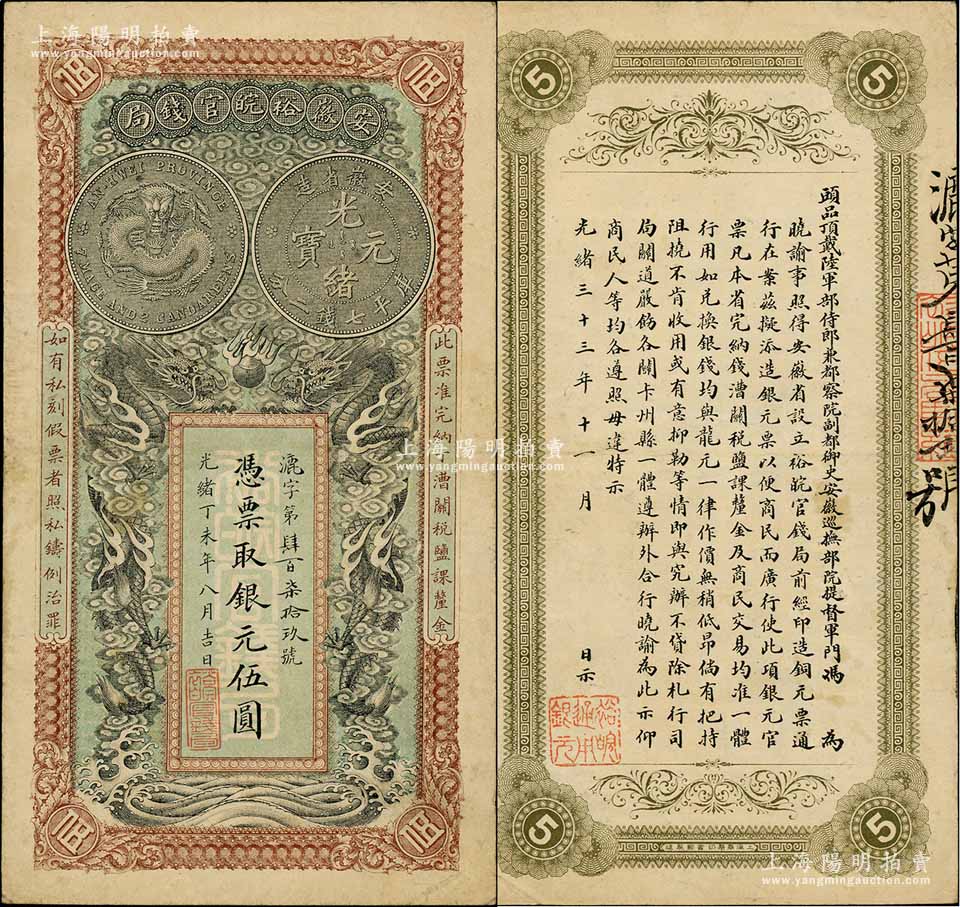 上海陽明拍賣
www.yangmingauction.com
伍
伍
安徽裕皖官錢局
AN-HWEI PROVINCE
7 MACE AND 2 CANDAREENS
安徽省造
光緒元寶
庫平七錢二分
此票准完納錢漕關稅鹽課釐金
如有私刻假票者照私鑄例治罪
漉字第肆百柒拾玖號
憑票取銀元伍圓
光緒丁未年八月吉日
伍
伍
5
5
頭品頂戴陸軍部侍郎兼都察院副都御史安徽巡撫部院提督軍門馮 為
曉諭事照得安徽省設立裕皖官錢局前經印造銅元票通
行在案茲擬添造銀元票以便商民而廣行使此項銀元官
票凡本省完納錢漕關稅鹽課釐金及商民交易均准一體
行用如兌換銀錢均與龍元一律作價無稍低昂倘有把持
阻撓不肯收用或有意抑勒等情即與究辦不貸除札行司
局關道嚴飭各關卡州縣一體遵辦外合行曉諭為此示仰
商民人等均各遵照毋違特示
光緒三十三年十一月 日示
裕皖
通用
銀元
5
5
上海陽明拍賣
www.yangmingauction.com
上海陽明拍賣
www.yangmingauction.com